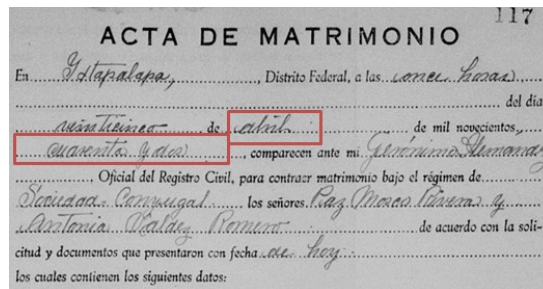 117
ACTA DE MATRIMONIO
En Ixtapalapa, , Distrito Federal, a las once horas
del día
veinticinco de abril de mil novecientos
cuarenta y dos , comparecen ante mi Gerónimo Alemand
, Oficial del Registro Civil, para contraer matrimonio bajo el régimen de
Sociedad Conyugal los señores Paz Moscos Riveras y
Antonia Valdez Romero de acuerdo con la soli-
citud y documentos que presentaron con fecha de hoy
los cuales contienen los siguientes datos: